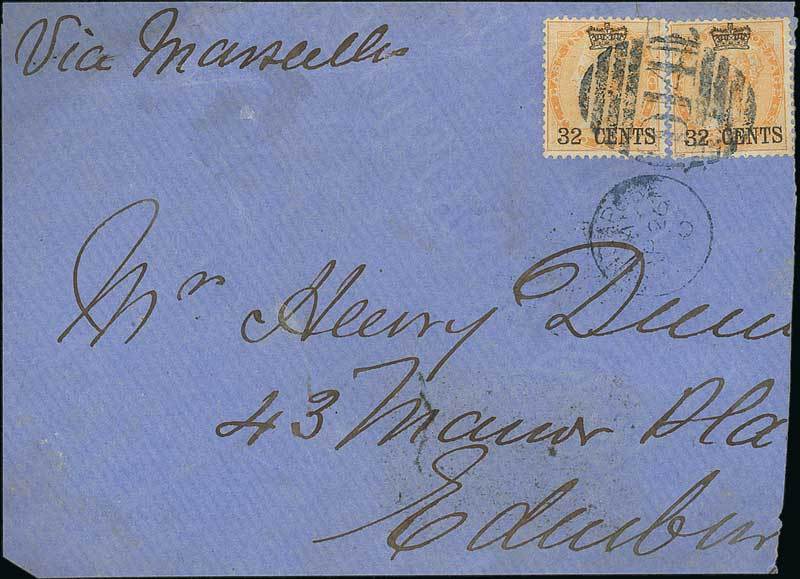 Via Marseilles
32 CENTS 32 CENTS
Mr Henry Dun
43 Manor Pla
Edinbur